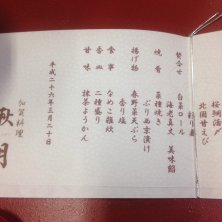 桜鯛酒〆
北国甘えび
替り鉢
焚合せ 白菜ロール
海老真丈 美味餡
焼肴 菜種焼き
ぶり西京漬け
揚げ物 春野菜天ぷら
食事 なめこ雑炊
香物 二種盛り
甘味 抹茶ようかん
平成二十六年三月二十日
加賀料理
秋月